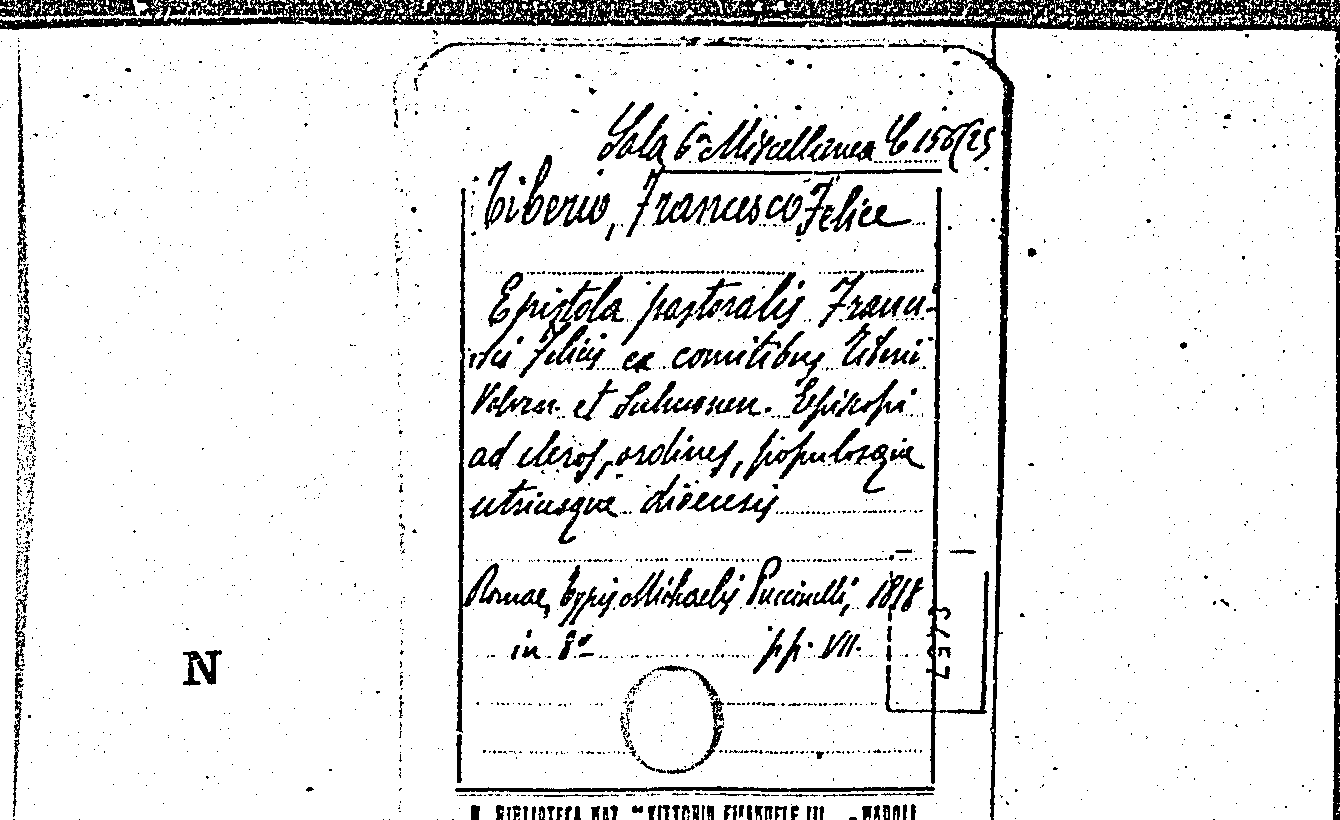 Sala 6ª Miscellanea C 156/25
Tiberio, Francesco Felice
Epistola pastoralis Franci-
sci Felicis ex comitibus Tiberii
Valven. et Sulmonen. Episcopi
ad cleros, ordines, populosque
utriusque diocesis
Romae, typis Michaelis Puccinelli, 1818
in 8º pp. VII.
N
R. BIBLIOTECA NAZ. "VITTORIO EMANUELE III" - NAPOLI